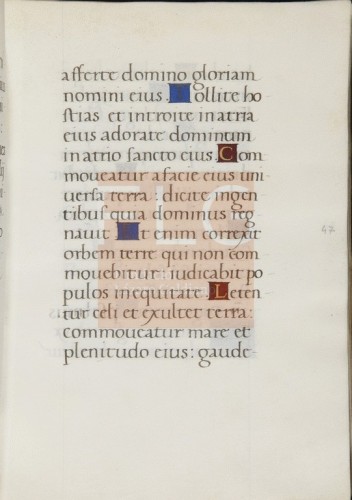 afferte domino gloriam
nomini eius. Tollite ho
stias et introite in atria
eius adorate dominum
in atrio sancto eius. Com
moveatur a facie eius uni
versa terra: dicite in gen
tibus quia dominus reg
navit Et enim correxit
orbem terre qui non com
movebitur: iudicabit po
pulos in equitate. Leten
tur celi et exultet terra:
commoveatur mare et
plenitudo eius: gaude-
47
FLG